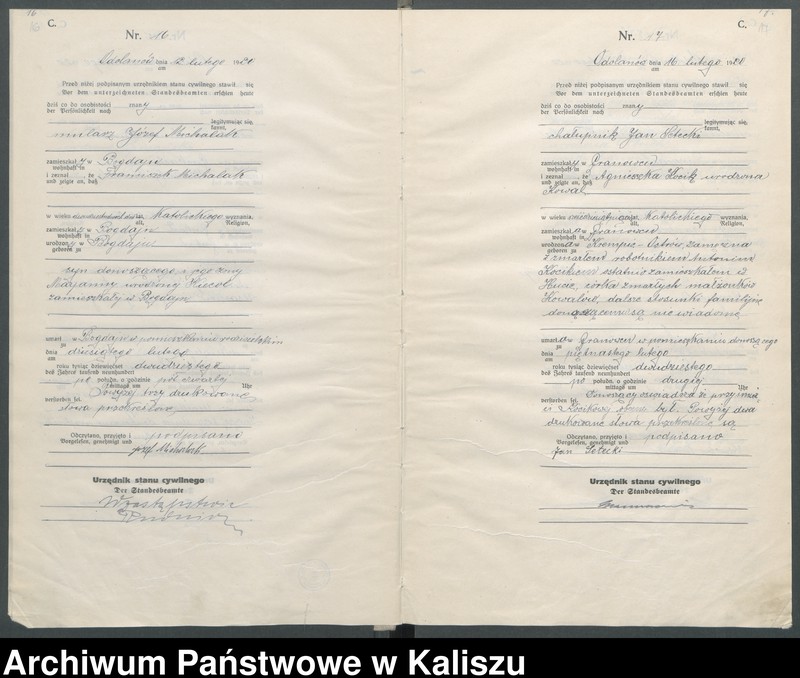 16
C.
Nr. 16
Odolanów dnia 12 lutego 1920
am
Przed niżej podpisanym urzędnikiem stanu cywilnego stawił się
Vor dem unterzeichneten Standesbeamten erschien heute
dziś co do osobistości znany
der Persönlichkeit nach
legitymując się,
kennt,
mularz Józef Michalak
zamieszkały w Bogdaju
wohnhaft in
i zeznał, że Franciszek Michalak
und zeigte an, daß
w wieku katolickiego wyznania,
alt, Religion,
zamieszkały w Bogdaju
wohnhaft in
urodzony w Bogdaju
geboren zu
syn donoszącego i jego żony
Maryanny urodzonej
zamieszkały w Bogdaju
umarł w Bogdaju w pomieszkaniu rodzicielskim
zu
dnia dziesiątego lutego
am
roku tysiąc dziewięćset dwudziestego
des Jahres tausend neunhundert
po połudn. o godzinie pół czwartej
mittags um Uhr
verstorben sei. Powyżej trzy drukowane
słowa przekreślono
Odczytano, przyjęto i podpisano
Vorgelesen, genehmigt und
Józef Michalak
Urzędnik stanu cywilnego
Der Standesbeamte
W zastępstwie
C.
Nr. 17
Odolanów dnia 16 lutego 1920
am
Przed niżej podpisanym urzędnikiem stanu cywilnego stawił się
Vor dem unterzeichneten Standesbeamten erschien heute
dziś co do osobistości znany
der Persönlichkeit nach
legitymując się,
kennt,
chałupnik Jan Sobecki
zamieszkały w Granowcu
wohnhaft in
i zeznał, że Agnieszka Kocik urodzona
und zeigte an, daß
Kowal
w wieku katolickiego wyznania,
alt, Religion,
zamieszkała w Granowcu
wohnhaft in
urodzona w Ostrów, zamężna
geboren zu
z zmarłym robotnikiem Antonim
Kocikiem ostatnio zamieszkałem w
Hucie, córka zmarłych małżonków
Kowalów, dalsze stosunki familijne
donoszącemu są nie wiadome
umarła w Granowcu w pomieszkaniu donoszącego
zu
dnia piętnastego lutego
am
roku tysiąc dziewięćset dwudziestego
des Jahres tausend neunhundert
po połudn. o godzinie drugiej
mittags um Uhr
verstorben sei. Donoszący oświadcza że przy śmierci
Kocikowej obecny był. Powyżej dwa
drukowane słowa przekreślone są
Odczytano, przyjęto i podpisano
Vorgelesen, genehmigt und
Jan Sobecki
Urzędnik stanu cywilnego
Der Standesbeamte
Archiwum Państwowe w Kaliszu